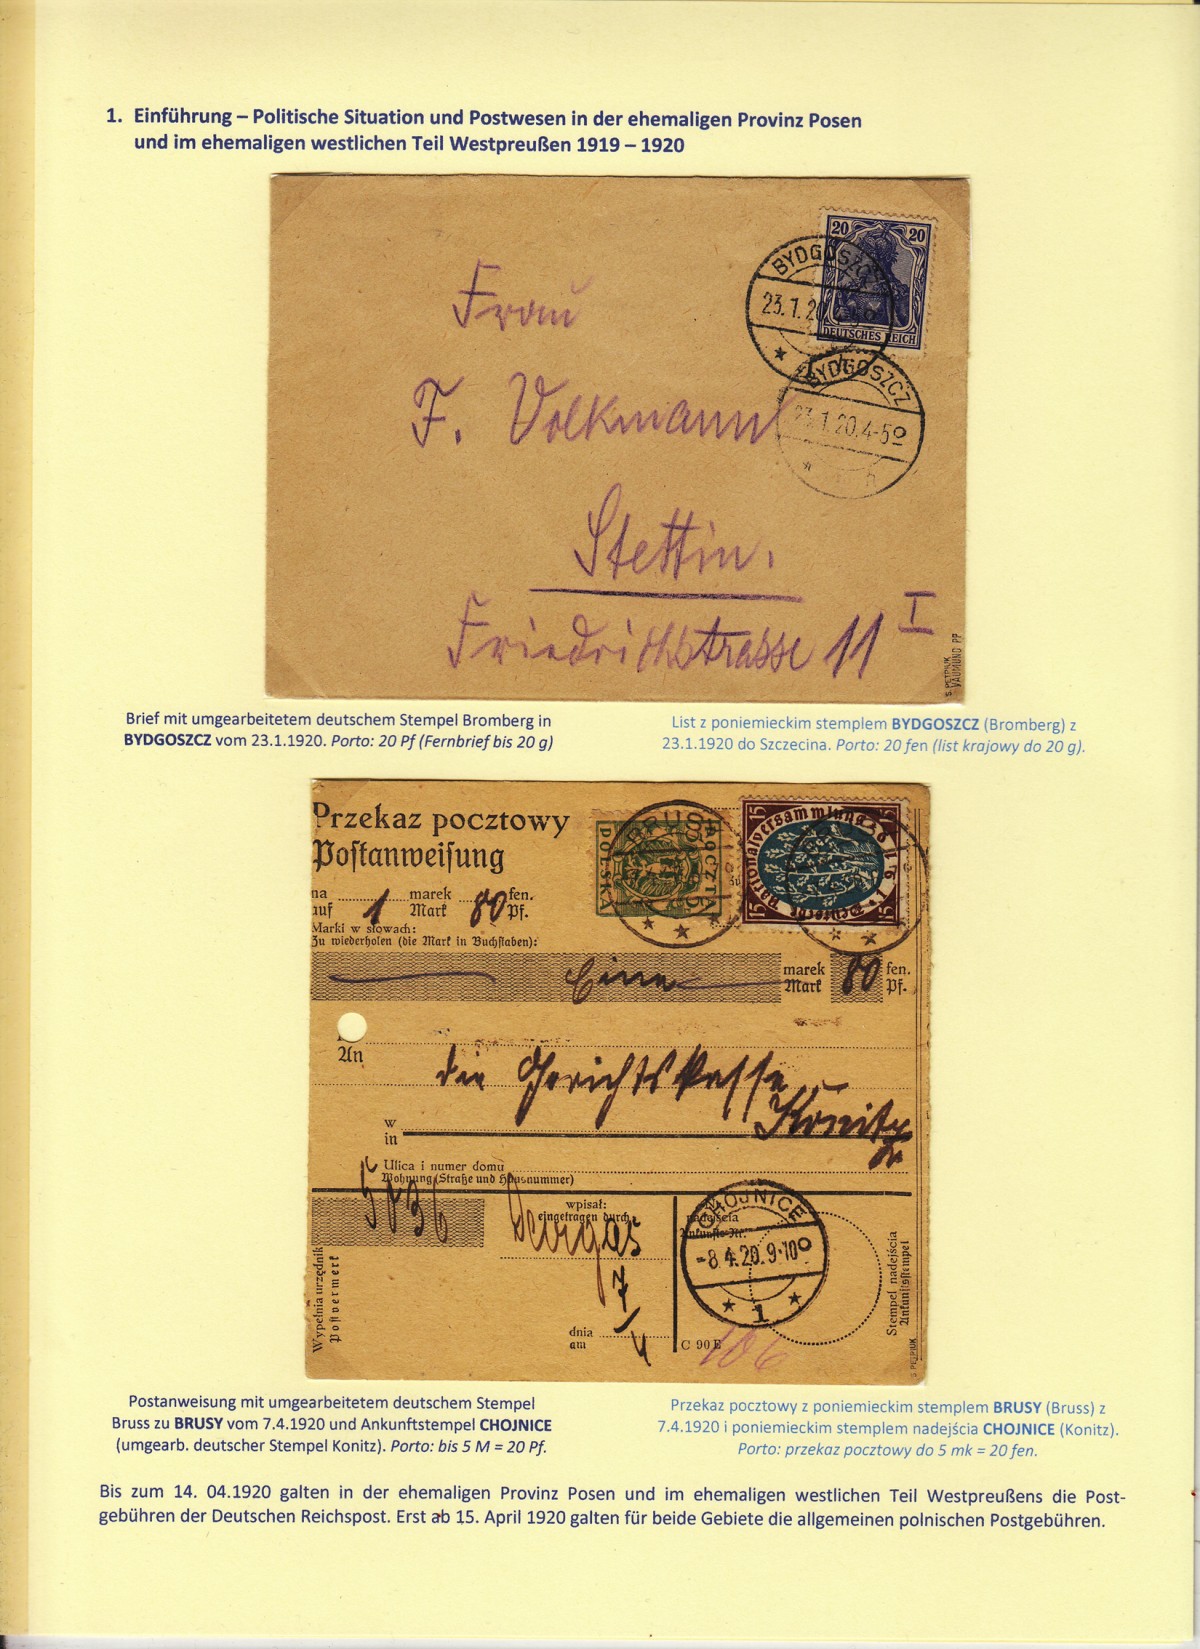 1. Einführung – Politische Situation und Postwesen in der ehemaligen Provinz Posen
und im ehemaligen westlichen Teil Westpreußen 1919 – 1920
20 20
DEUTSCHES REICH
BYDGOSZCZ
23.1.20
BYDGOSZCZ
23.1.20.4-5⁰
Frau
F. Volkmann
Stettin.
Friedrichstrasse 11 I
S. PETRIUK
VAUMUND PF
Brief mit umgearbeitetem deutschem Stempel Bromberg in
BYDGOSZCZ vom 23.1.1920. Porto: 20 Pf (Fernbrief bis 20 g)
List z poniemieckim stemplem BYDGOSZCZ (Bromberg) z
23.1.1920 do Szczecina. Porto: 20 fen (list krajowy do 20 g).
Przekaz pocztowy
Postanweisung
POLSKA
POCZTA
5
BRUSY
15 15
Deutsche Nationalversammlung 1919
15 15
na marek fen.
auf 1 Mark 80 Pf.
Marki w słowach:
Zu wiederholen (die Mark in Buchstaben):
Eine marek 80 fen.
Mark Pf.
An die Gerichtskasse
w
in Konitz
Ulica i numer domu
Wohnung (Straße und Hausnummer)
5836
wpisał:
eingetragen durch
nadejścia
Ankunfts-Nr.
CHOJNICE
-8.4.20.9-10⁰
1
Wypełnia urzędnik
Postvermerk
Stempel nadejścia
Ankunftsstempel
7/4
dnia
am
C 90 E
106
S. PETRIUK
Postanweisung mit umgearbeitetem deutschem Stempel
Bruss zu BRUSY vom 7.4.1920 und Ankunftstempel CHOJNICE
(umgearb. deutscher Stempel Konitz). Porto: bis 5 M = 20 Pf.
Przekaz pocztowy z poniemieckim stemplem BRUSY (Bruss) z
7.4.1920 i poniemieckim stemplem nadejścia CHOJNICE (Konitz).
Porto: przekaz pocztowy do 5 mk = 20 fen.
Bis zum 14. 04.1920 galten in der ehemaligen Provinz Posen und im ehemaligen westlichen Teil Westpreußens die Post-
gebühren der Deutschen Reichspost. Erst ab 15. April 1920 galten für beide Gebiete die allgemeinen polnischen Postgebühren.